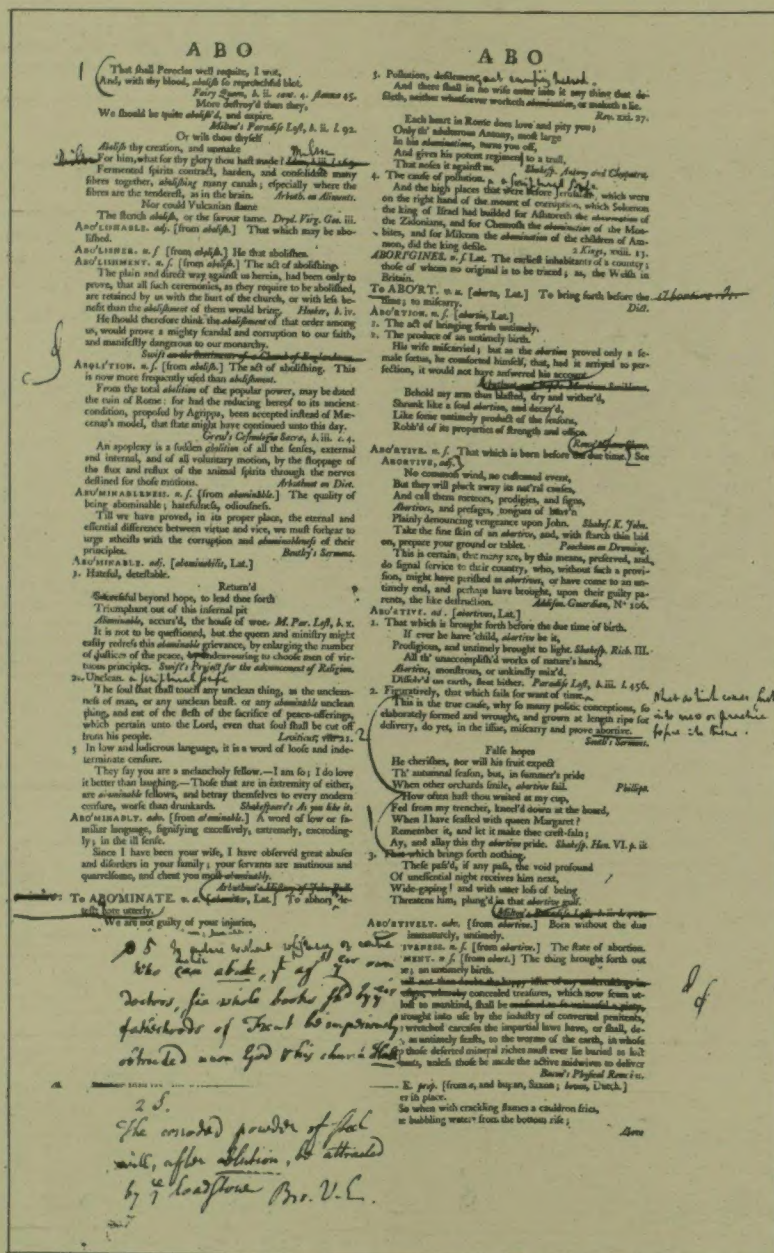 ABO
That shall Perocles well requite, I wot,
And, with thy blood, abolish so reproachful blot.
Fairy Queen, b. ii. cant. 4. stanza 45.
More destroy'd than they,
We should be quite abolish'd, and expire.
Milton's Paradise Lost, b. ii. l. 92.
Or wilt thou thyself
Abolish thy creation, and unmake
For him, what for thy glory thou hast made?
Milton
Fermented spirits contract, harden, and consolidate many
fibres together, abolishing many canals; especially where the
fibres are the tenderest, as in the brain. Arbuth. on Aliments.
Nor could Vulcanian flame
The stench abolish, or the savour tame. Dryd. Virg. Geo. iii.
ABO'LISHABLE. adj. [from abolish.] That which may be abo-
lished.
ABO'LISHER. n. s. [from abolish.] He that abolishes.
ABO'LISHMENT. n. s. [from abolish.] The act of abolishing.
The plain and direct way against us herein, had been only to
prove, that all such ceremonies, as they require to be abolished,
are retained by us with the hurt of the church, or with less be-
nefit than the abolishment of them would bring. Hooker, b. iv.
He should therefore think the abolishment of that order among
us, would prove a mighty scandal and corruption to our faith,
and manifestly dangerous to our monarchy.
Swift
ABOLI'TION. n. s. [from abolish.] The act of abolishing. This
is now more frequently used than abolishment.
From the total abolition of the popular power, may be dated
the ruin of Rome: for had the reducing hereof to its ancient
condition, proposed by Agrippa, been accepted instead of Mæ-
cenas's model, that state might have continued unto this day.
Grew's Cosmologia Sacra, b. iii. c. 4.
An apoplexy is a sudden abolition of all the senses, external
and internal, and of all voluntary motion, by the stoppage of
the flux and reflux of the animal spirits through the nerves
destined for those motions. Arbuthnot on Diet.
ABO'MINABLENESS. n. s. [from abominable.] The quality of
being abominable; hatefulness, odiousness.
Till we have proved, in its proper place, the eternal and
essential difference between virtue and vice, we must forbear to
urge atheists with the corruption and abominableness of their
principles. Bentley's Sermons.
ABO'MINABLE. adj. [abominabilis, Lat.]
1. Hateful, detestable.
Return'd
Successful beyond hope, to lead thee forth
Triumphant out of this infernal pit
Abominable, accurs'd, the house of woe. M. Par. Lost, b. x.
It is not to be questioned, but the queen and ministry might
easily redress this abominable grievance, by enlarging the number
of justices of the peace, by endeavouring to choose men of vir-
tuous principles. Swift's Project for the advancement of Religion.
2. Unclean. a scriptural sense
The soul that shall touch any unclean thing, as the unclean-
ness of man, or any unclean beast, or any abominable unclean
thing, and eat of the flesh of the sacrifice of peace-offerings,
which pertain unto the Lord, even that soul shall be cut off
from his people. Leviticus, vii. 21.
5 In low and ludicrous language, it is a word of loose and inde-
terminate censure.
They say you are a melancholy fellow.—I am so; I do love
it better than laughing.—Those that are in extremity of either,
are abominable fellows, and betray themselves to every modern
censure, worse than drunkards. Shakespeare's As you like it.
ABO'MINABLY. adv. [from abominable.] A word of low or fa-
miliar language, signifying excessively, extremely, exceeding-
ly; in the ill sense.
Since I have been your wife, I have observed great abuses
and disorders in your family; your servants are mutinous and
quarrelsome, and cheat you most abominably.
Arbuthnot's History of John Bull.
To ABO'MINATE. v. a. [abominor, Lat.] To abhor, de-
test, hate utterly.
We are not guilty of your injuries,
Who can abide, yt agst yer own
Doctors, six whole books by yer
fatherhoods of Trent be imperiously
obtruded upon God & his church Hall
2 5.
The corroded powder of steel
will, after ablution, be attracted
by ye loadstone Bro. V. E.
ABO
3. Pollution, defilement, act causing hatred.
And there shall in no wise enter into it any thing that de-
fileth, neither whatsoever worketh abomination, or maketh a lie.
Rev. xxi. 27.
Each heart in Rome does love and pity you;
Only th' adulterous Antony, most large
In his abominations, turns you off,
And gives his potent regiment to a trull,
That noses it against us. Shakesp. Antony and Cleopatra.
4. The cause of pollution. a scriptural sense
And the high places that were before Jerusalem, which were
on the right hand of the mount of corruption, which Solomon
the king of Israel had builded for Ashtoreth the abomination of
the Zidonians, and for Chemosh the abomination of the Moa-
bites, and for Milcom the abomination of the children of Am-
mon, did the king defile. 2 Kings, xxiii. 13.
ABORI'GINES. n. s. Lat. The earliest inhabitants of a country;
those of whom no original is to be traced; as, the Welsh in
Britain.
To ABO'RT. v. n. [aborto, Lat.] To bring forth before the
time; to miscarry. Dict.
ABO'RTION. n. s. [abortio, Lat.]
1. The act of bringing forth untimely.
2. The produce of an untimely birth.
His wife miscarried; but as the abortion proved only a fe-
male foetus, he comforted himself, that, had it arrived to per-
fection, it would not have answered his account.
Behold my arm thus blasted, dry and wither'd,
Shrunk like a foul abortion, and decay'd,
Like some untimely product of the seasons,
Robb'd of its properties of strength and office.
ABO'RTIVE. n. s. That which is born before the due time. See
ABORTIVE, adj.
No common wind, no customed event,
But they will pluck away its nat'ral causes,
And call them meteors, prodigies, and signs,
Abortives, and presages, tongues of heav'n
Plainly denouncing vengeance upon John. Shakesp. K. John.
Take the fine skin of an abortive, and, with starch thin laid
on, prepare your ground or tablet. Peacham on Drawing.
This is certain, that many are, by this means, preserved, and
do signal service to their country, who, without such a provi-
sion, might have perished as abortives, or have come to an un-
timely end, and perhaps have brought, upon their guilty pa-
rents, the like destruction. Addison. Guardian, N° 106.
ABO'RTIVE. adj. [abortivus, Lat.]
1. That which is brought forth before the due time of birth.
If ever he have child, abortive be it,
Prodigious, and untimely brought to light. Shakesp. Rich. III.
All th' unaccomplish'd works of nature's hand,
Abortive, monstrous, or unkindly mix'd,
Dissolv'd on earth, fleet hither. Paradise Lost, b. iii. l. 456.
2. Figuratively, that which fails for want of time.
that which comes not
into use or practice
before its time.
This is the true cause, why so many politic conceptions, so
elaborately formed and wrought, and grown at length ripe for
delivery, do yet, in the issue, miscarry and prove abortive.
South's Sermons.
False hopes
He cherishes, nor will his fruit expect
Th' autumnal season, but, in summer's pride
When other orchards smile, abortive fail. Philips.
How often hast thou waited at my cup,
Fed from my trencher, kneel'd down at the board,
When I have feasted with queen Margaret?
Remember it, and let it make thee crest-faln;
Ay, and allay this thy abortive pride. Shakesp. Hen. VI. p. ii.
3. That which brings forth nothing.
These pass'd, if any pass, the void profound
Of unessential night receives him next,
Wide-gaping! and with utter loss of being
Threatens him, plung'd in that abortive gulf.
Milton's Paradise Lost
ABO'RTIVELY. adv. [from abortive.] Born without the due
immaturely, untimely.
IVENESS. n. s. [from abortive.] The state of abortion.
MENT. n. s. [from abort.] The thing brought forth out
e; an untimely birth.
concealed treasures, which now seem ut-
lost to mankind, shall be
rought into use by the industry of converted penitents,
wretched carcases the impartial laws have, or shall, de-
as untimely feasts, to the worms of the earth, in whose
those deserted mineral riches must ever lie buried as lost
ents, unless those be made the active midwives to deliver
Bacon's Physical Remains.
E. prep. [from a, and bupan, Saxon; boven, Dutch.]
er in place.
So when with crackling flames a cauldron fries,
e bubbling waters from the bottom rise;
Above